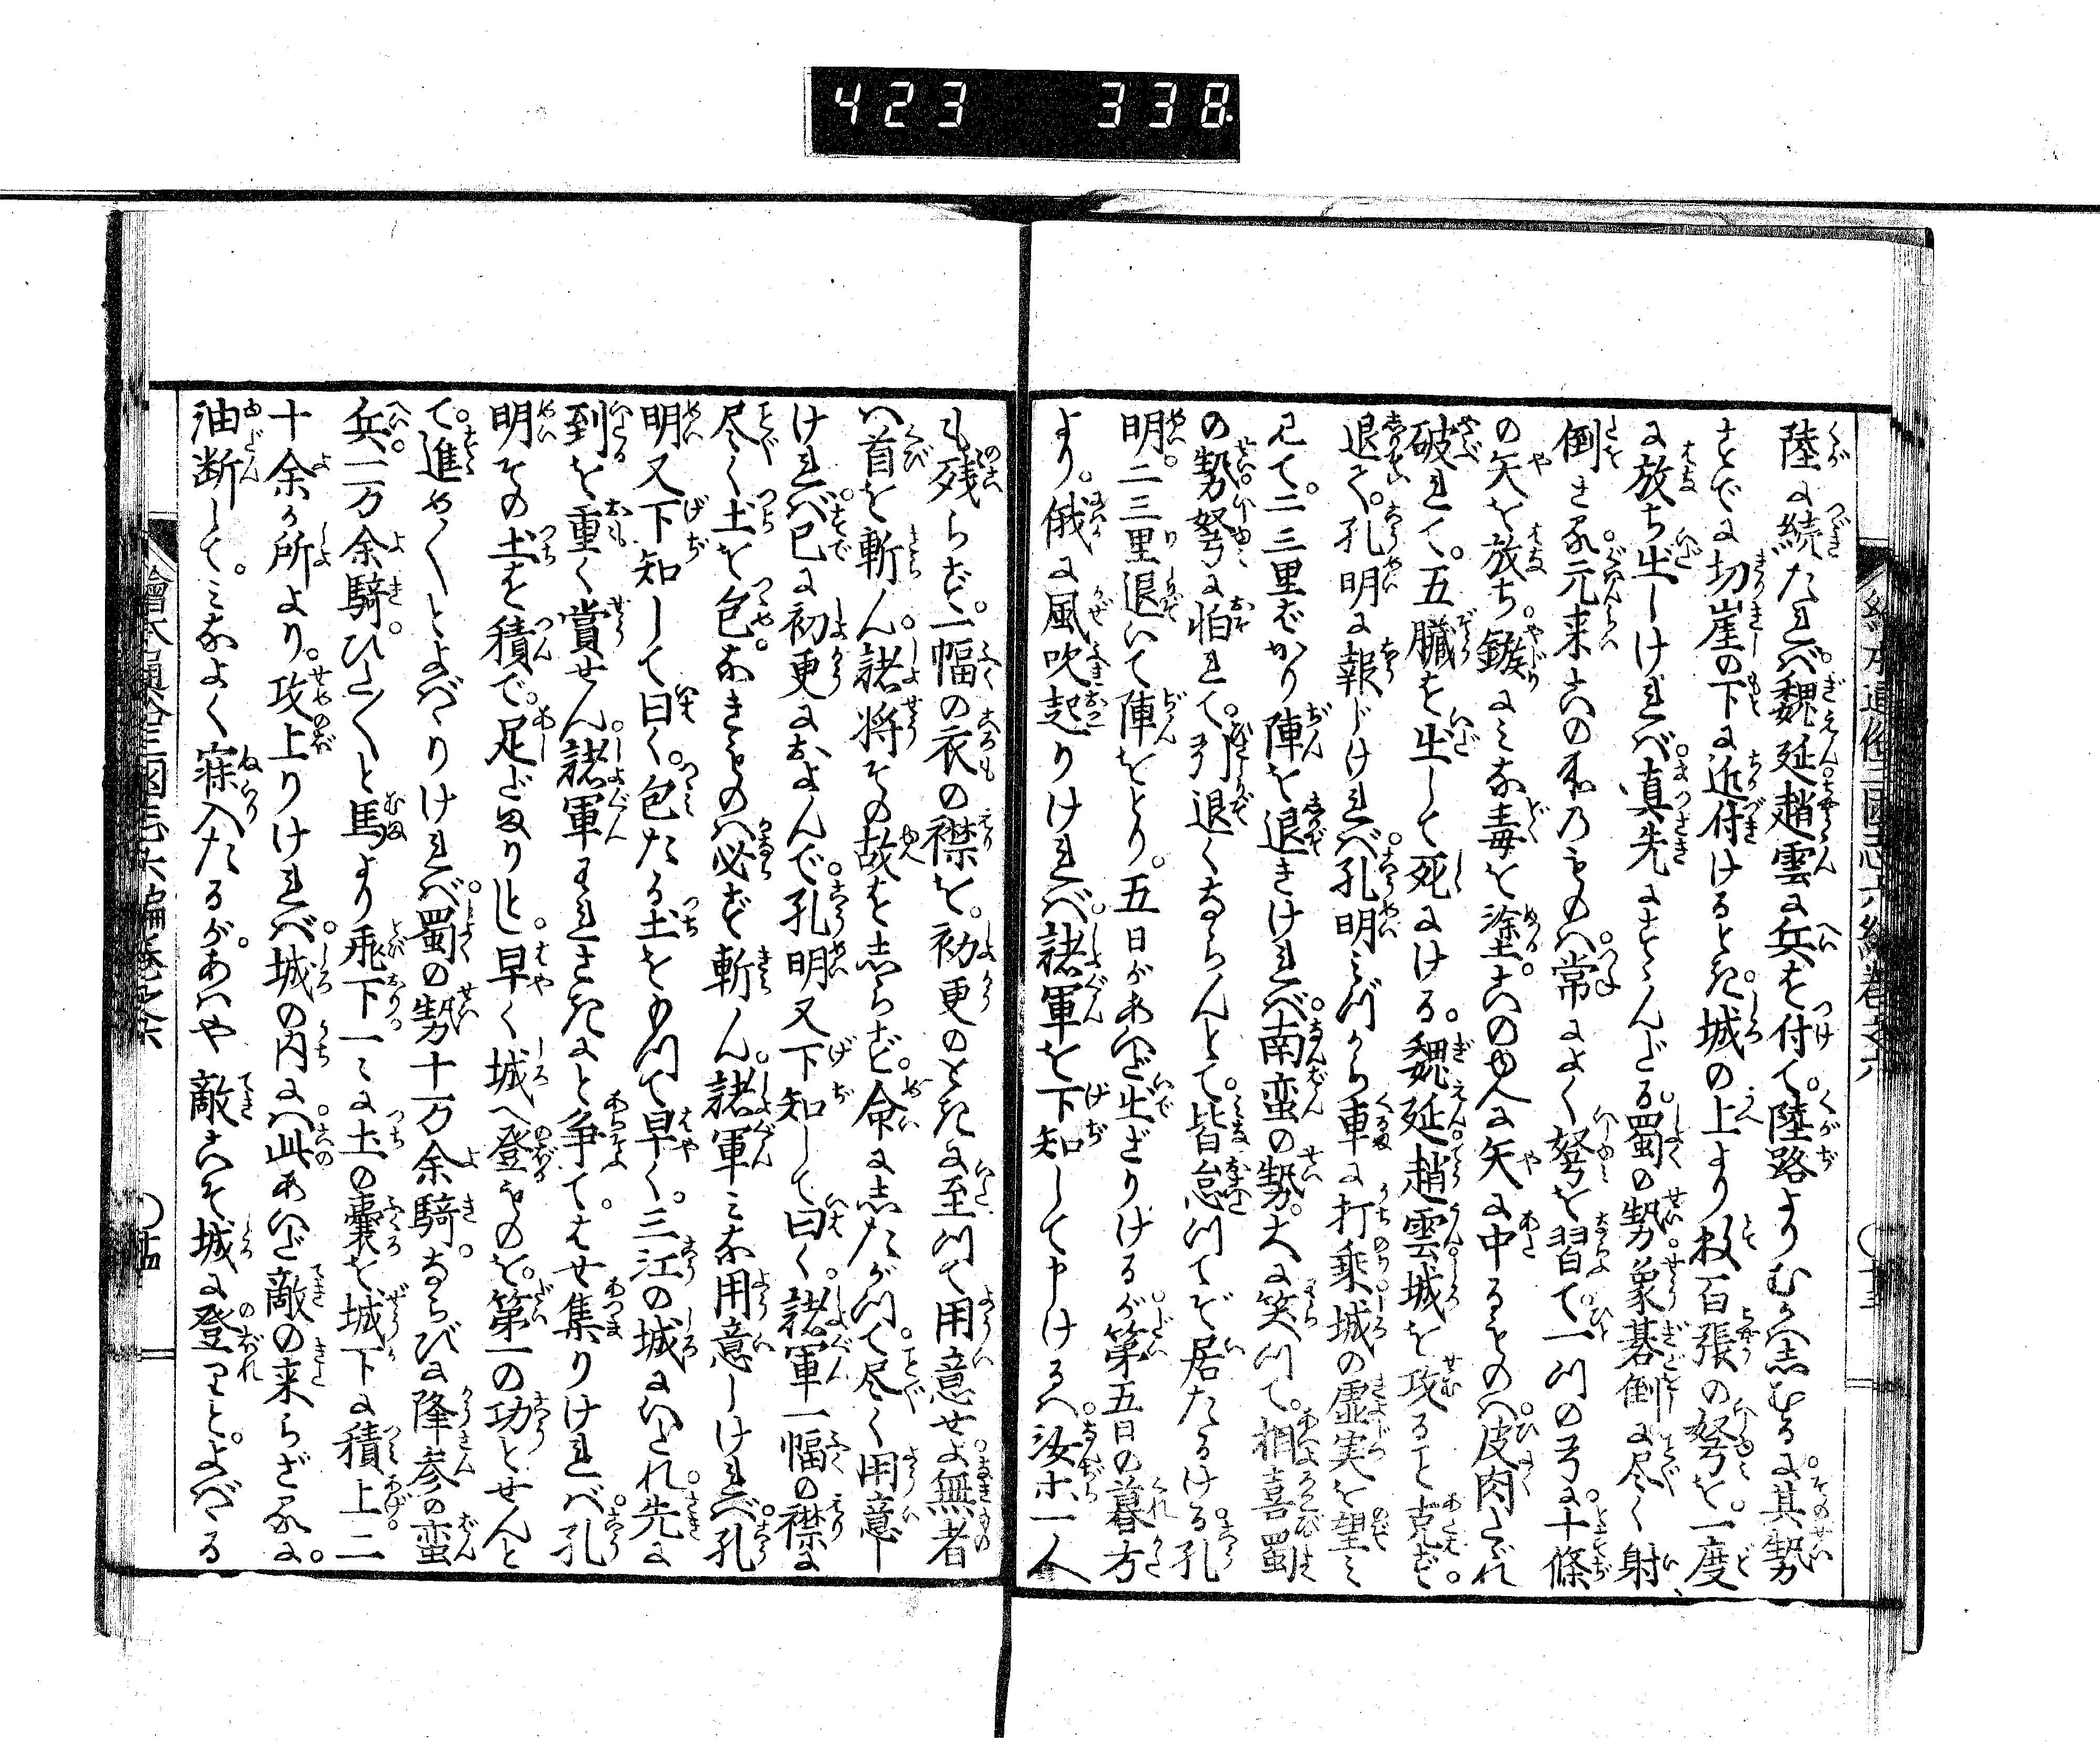 423 338
陸に続たれば。魏延趙雲に兵を付て。陸路よりむかはしむるに。其勢
すでに切崖の下に近付けるとき。城の上より数百張の弩を。一度
に放ち出しければ。真先にすゝんだる。蜀の勢。象碁倒に尽く射
倒さる。元来この所のものは。常によく弩を習て。一つの弓に。十條
の矢を放ち。鏃にみな毒を塗。このゆへに矢に中るものは。皮肉たゞれ
破れて。五臓を出して死にける。魏延。趙雲。城を攻ること克ず。
退て。孔明に報じければ。孔明みづから車に打乗。城の虚実を望み
見て。二三里ばかり陣を退きければ。南蛮の勢。大に笑つて。相喜蜀
の勢。弩に怕れて。引退くならんとて。皆怠つてぞ居たるける。孔
明。二三里退いて陣をとり。五日があいだ出ざりけるが。第五日の暮方
より。俄に風吹起りければ。諸軍を下知して申けるは。汝等一人
も残らず。一幅の衣の襟を。初更のときに至つて用意せよ。無者
は首を斬ん。諸将その故をしらず。命にしたがつて。尽く用意し
ければ。已に初更におよんで。孔明又下知して曰く。諸軍一幅の襟に
尽く土を包。なきものは必ず斬ん。諸軍みな用意しければ。孔
明又下知して曰く。包たる土をもつて早く。三江の城にいたれ。先に
到を重く賞せん。諸軍われさきにと争て。はせ集りければ。孔
明その土を積で。足だまりとし。早く城へ登ものを。第一の功とせんと
て。進めくとよばゝりければ。蜀の勢十万余騎。ならびに降参の蛮
兵。一万余騎。ひたくと馬より飛下一に土の嚢を。城下に積上。二
十余所より。攻上りければ。城の内には。此あいだ敵の来らざるに。
油断して。みなよく寐入たるが。あはや敵こそ城に登れりと。よばゝる